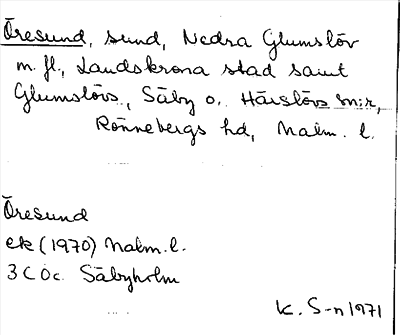 Öresund, sund, Nedra Glumslöv
m. fl., Landskrona stad samt
Glumslövs, Säby o. Härslövs snr,
Rönnebergs hd, Malm. l.
Öresund
ek (1970) Malm. l.
3 C 0c Säbyholm
K. S-n 1971